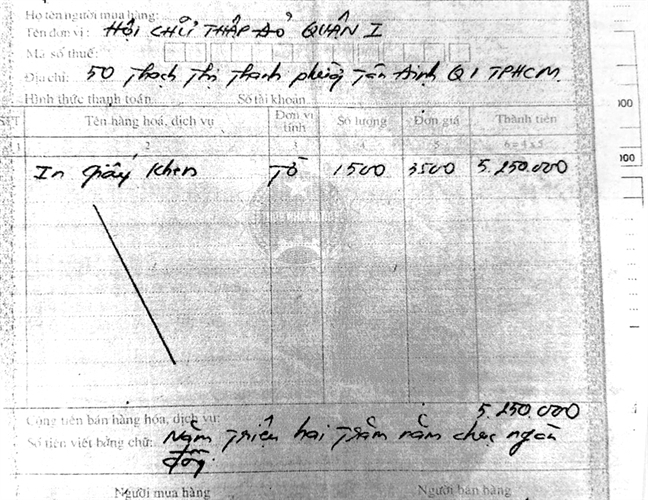 Họ tên người mua hàng:
Tên đơn vị: HỘI CHỮ THẬP ĐỎ QUẬN I
Mã số thuế:
Địa chỉ: 50 Thạch Thị Thanh phường Tân Định Q1 TPHCM
Hình thức thanh toán Số tài khoản
STT Tên hàng hoá, dịch vụ Đơn vị tính Số lượng Đơn giá Thành tiền
1 2 3 4 5 6 = 4 x 5
In giấy khen Tờ 1500 3500 5.250.000
Cộng tiền bán hàng hóa, dịch vụ: 5.250.000
Số tiền viết bằng chữ: Năm triệu hai trăm năm chục ngàn
đồng.
Người mua hàng Người bán hàng
000
000